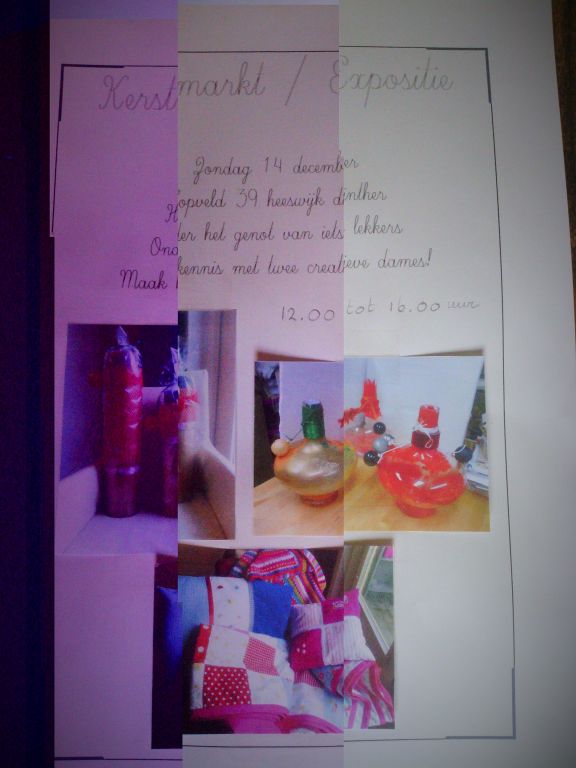 Kerstmarkt / Expositie
Zondag 14 december
Hopveld 39 heeswijk dinther
Onder het genot van iets lekkers
Maak kennis met twee creatieve dames!
12.00 tot 16.00 uur